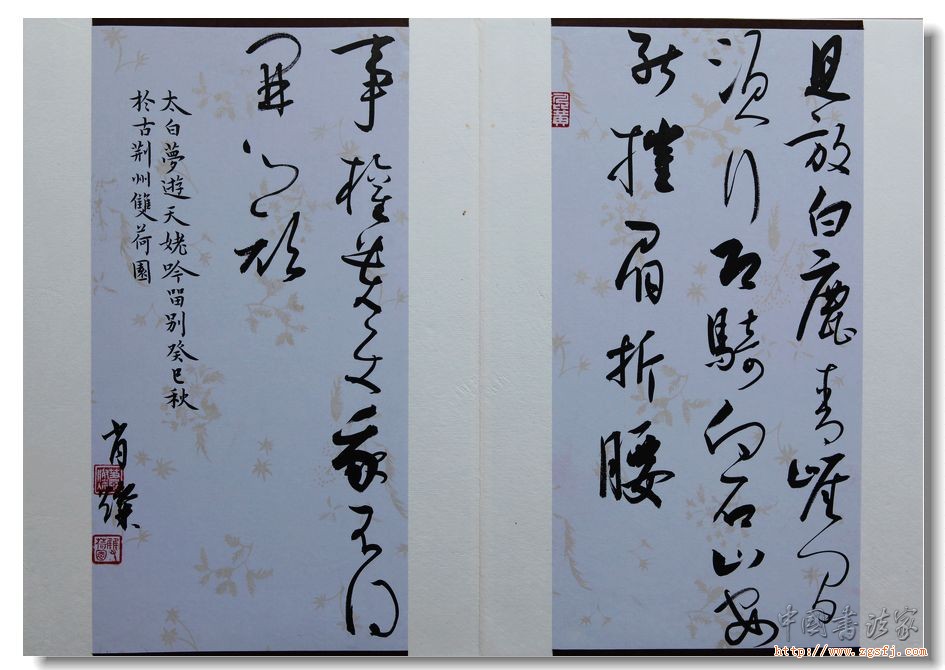 且放白鹿青崖間
須行即騎向名山安
能摧眉折腰
事權貴使我不得
開心顏
太白夢遊天姥吟留別癸巳秋
於古荊州雙荷園
肖
中國書法家
http://www.zgsfj.com